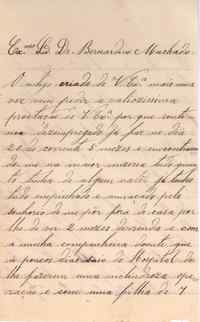 Ex.mo Sr. Dr. Bernardino Machado.
O antigo criado de V. Ex.ª mais uma
vez vem pedir a valiosissima
protecção de V. Ex.ª por que contí-
núa desempregado já faz no dia
20 do corrente 5 mezes e encontran-
do-me na maior miseria tudo quan-
to tinha de algum valor já tenho
tudo empenhado e ameaçado pelo
senhorio de me pôr fóra de casa por
lhe dever 2 mezes de renda e com
a minha companheira doente que
há poucos dias saiu do Hospital de
lhe fazerem uma melindrosa ope-
ração e com uma filha de 7